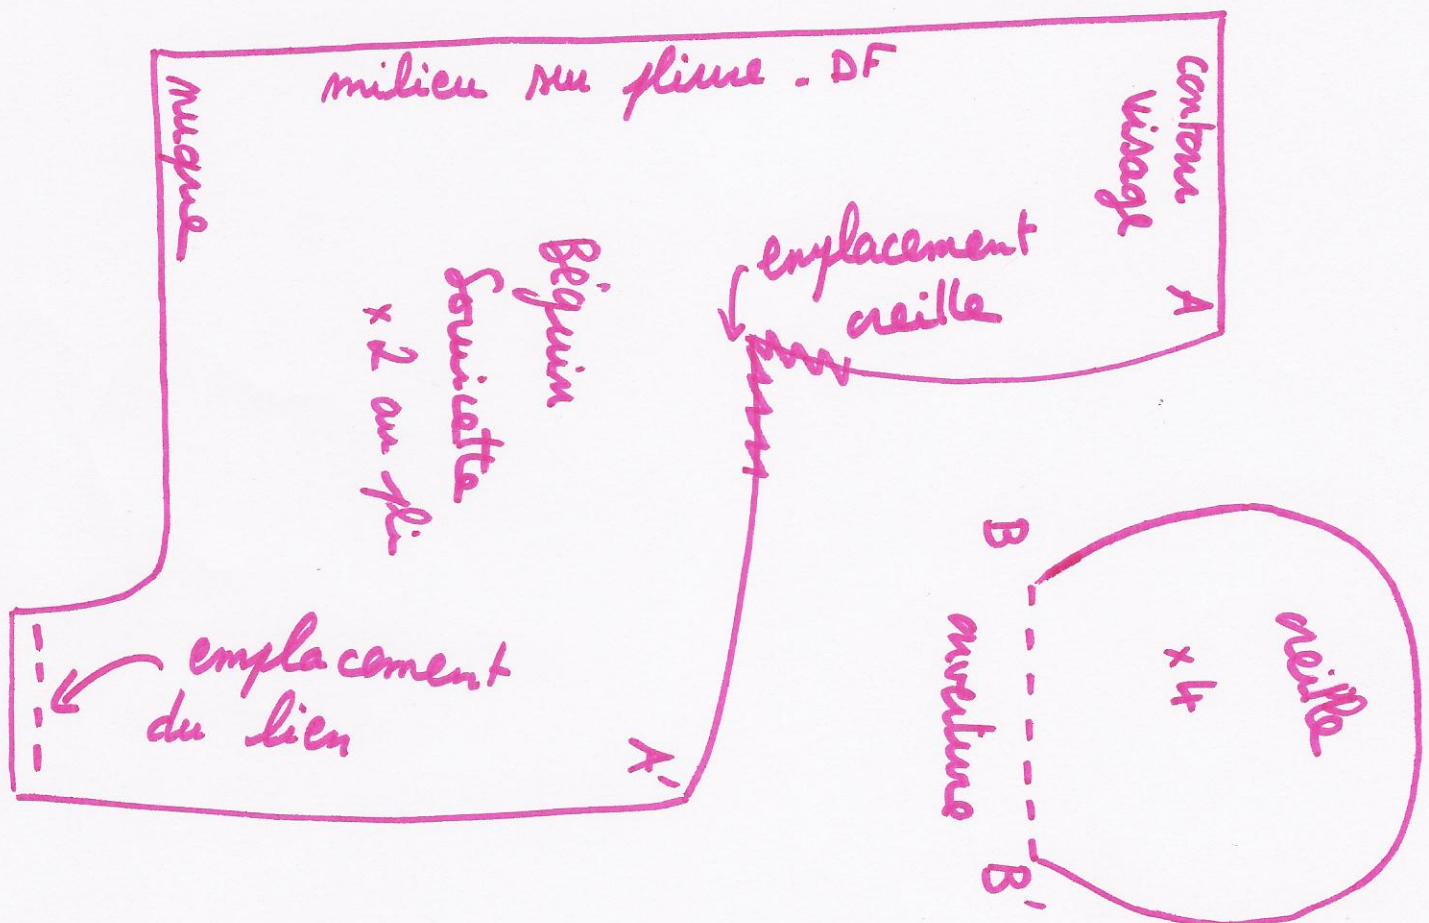 milieu sur pliure . DF
nuque
contour
visage
A
emplacement
oreille
Béguin
Souricette
x 2 au pli
emplacement
du lien
A'
B
ouverture
B'
oreille
x 4